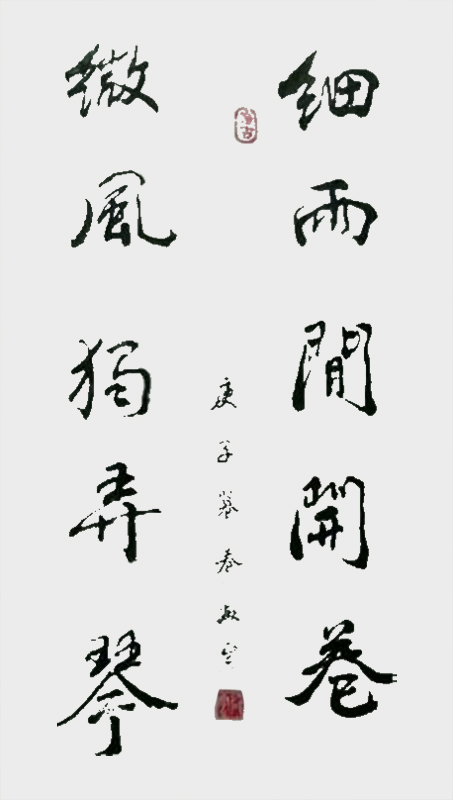 細雨閒開卷
微風獨弄琴
庚子暮春